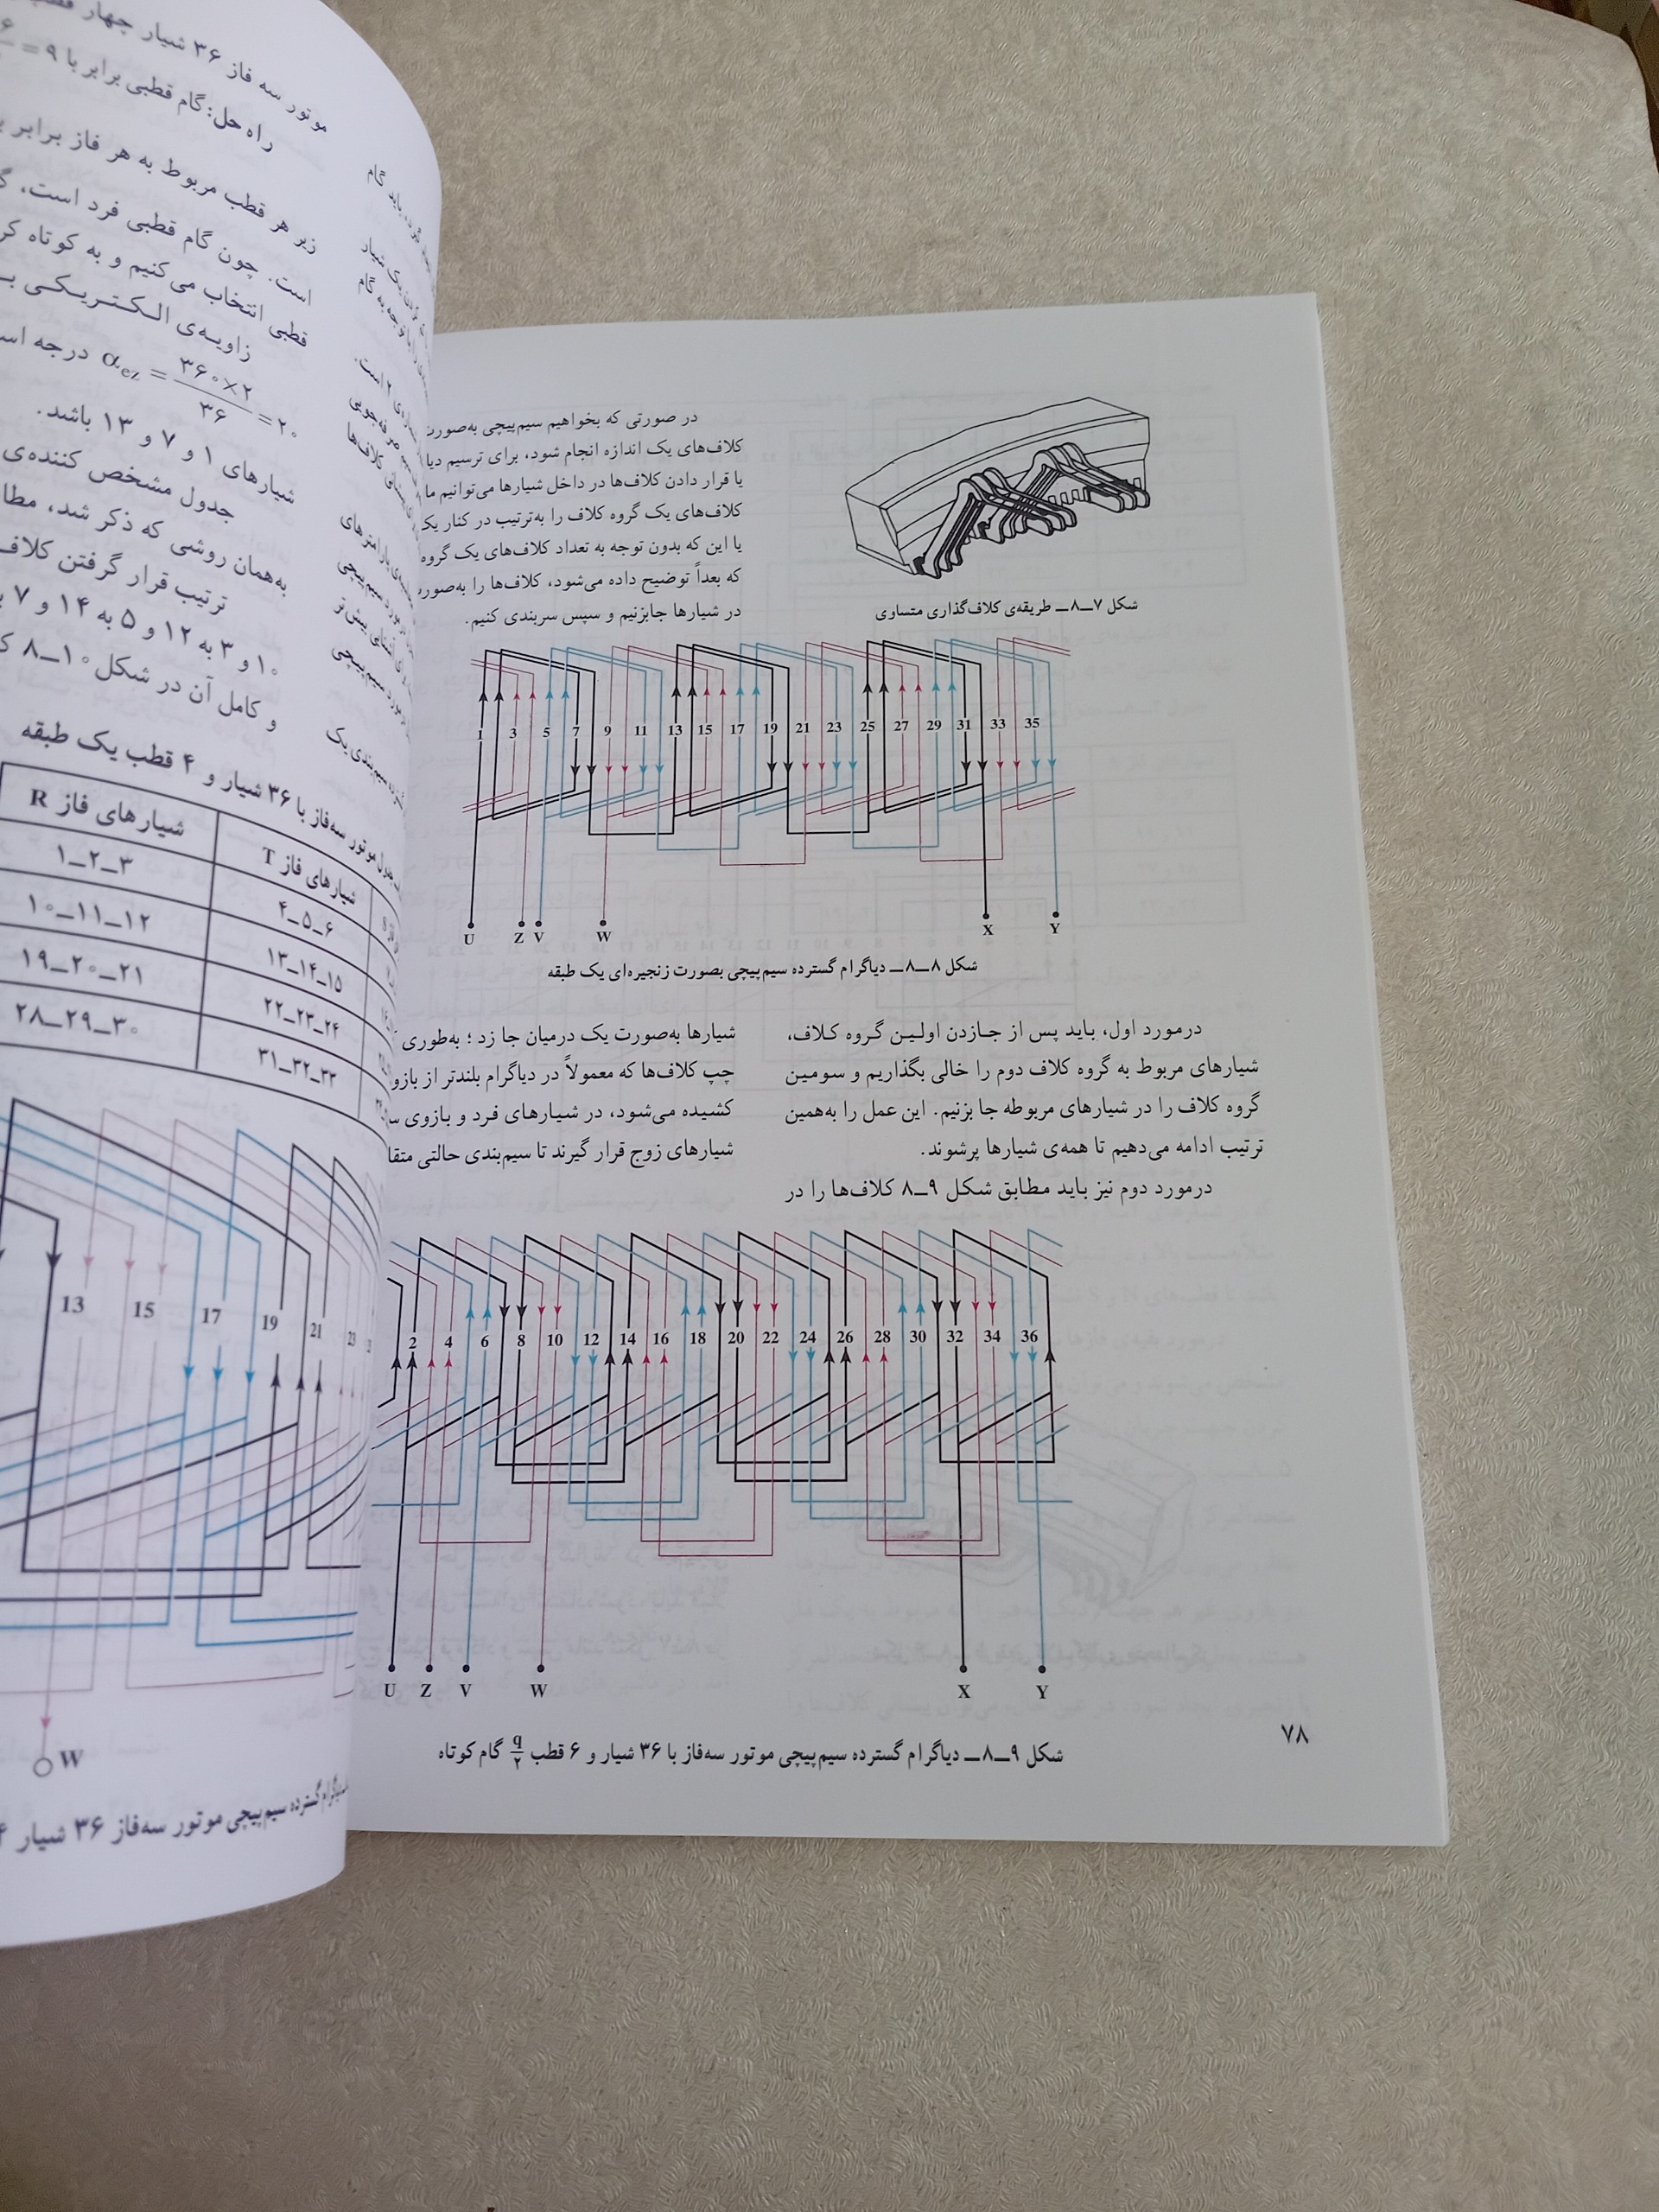 در صورتی که بخواهیم سیم‌پیچی به‌صورت
کلاف‌های یک اندازه انجام شود، برای ترسیم
یا قرار دادن کلاف‌ها در داخل شیارها می‌توانیم ما
کلاف‌های یک گروه کلاف را به‌ترتیب در کنار یک
یا این که بدون توجه به تعداد کلاف‌های یک گروه
که بعداً توضیح داده می‌شود، کلاف‌ها را به‌صورت
در شیارها جابزنیم و سپس سربندی کنیم.
شکل ۷ــ۸ــ طریقه‌ی کلاف‌گذاری متساوی
1 3 5 7 9 11 13 15 17 19 21 23 25 27 29 31 33 35
U Z V W X Y
شکل ۸ــ۸ــ دیاگرام گسترده سیم‌پیچی بصورت زنجیره‌ای یک طبقه
درمورد اول، باید پس از جـازدن اولـیـن گـروه کـلاف،
شیارهای مربوط به گروه کلاف دوم را خالی بگذاریم و سـومـین
گروه کلاف را در شیارهای مربوطه جا بزنیم. این عمل را به‌همین
ترتیب ادامه می‌دهیم تا همه‌ی شیارها پرشوند.
درمورد دوم نیز باید مطابق شکل ۹ــ۸ کلاف‌ها را در
شیارها به‌صورت یک درمیان جا زد ؛ به‌طوری
چپ کلاف‌ها که معمولاً در دیاگرام بلندتر از بازو
کشیده می‌شود، در شیـارهای فـرد و بـازوی
شیارهای زوج قرار گیرند تا سیم‌بندی حالتی متقا
2 4 6 8 10 12 14 16 18 20 22 24 26 28 30 32 34 36
U Z V W X Y
شکل ۹ــ۸ــ دیاگرام گسترده سیم‌پیچی موتور سه‌فاز با ۳۶ شیار و ۶ قطب q/۲ گام کوتاه
۷۸
موتور سه فاز ۳۶ شیار چهار
راه حل: گام قطبی برابر با ۹ =
زیر هر قطب مربوط به هر فاز برابر
است. چون گام قطبی فرد است،
قطبی انتخاب می‌کنیم و به کوتاه
زاویـه‌ی الـکـتـریـکـی
αez = ۳۶۰×۲ / ۳۶ = ۲۰ درجه
شیارهای ۱ و ۷ و ۱۳ باشد.
جدول مشخص کننده‌ی
به‌همان روشی که ذکر شد،
ترتیب قرار گرفتن کلاف
۱۰ و ۳ به ۱۲ و ۵ به ۱۴ و ۷
و کامل آن در شکل ۱۰ــ۸
موتور سه‌فاز با ۳۶ شیار و ۴ قطب یک طبقه
شیارهای فاز R شیارهای فاز T
۱ــ۲ــ۳ ۴ــ۵ــ۶
۱۰ــ۱۱ــ۱۲ ۱۳ــ۱۴ــ۱۵
۱۹ــ۲۰ــ۲۱ ۲۲ــ۲۳ــ۲۴
۲۸ــ۲۹ــ۳۰ ۳۱ــ۳۲ــ۳۳
13 15 17 19 21 23
W
گسترده سیم‌پیچی موتور سه‌فاز ۳۶ شیار ۴